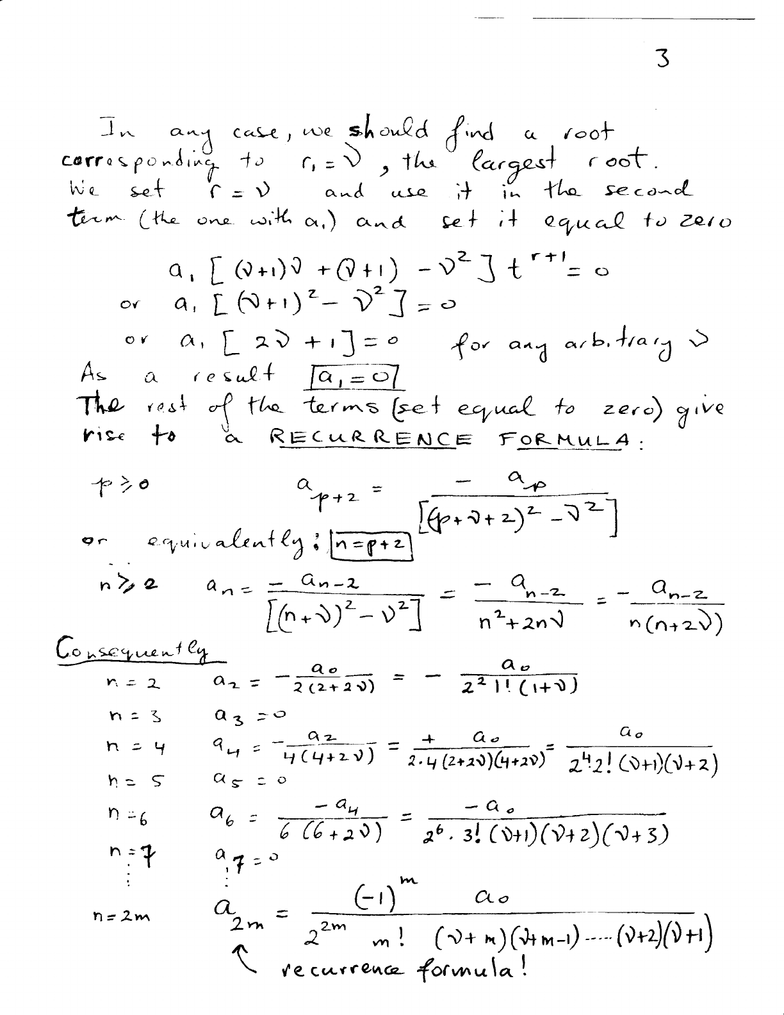 3
In any case, we should find a root
corresponding to r₁ = ν, the largest root.
We set r = ν and use it in the second
term (the one with a₁) and set it equal to zero
a₁ [ (ν+1)ν + (ν+1) − ν² ] t^(r+1) = 0
or a₁ [ (ν+1)² − ν² ] = 0
or a₁ [ 2ν + 1 ] = 0 for any arbitrary ν
As a result a₁ = 0
The rest of the terms (set equal to zero) give
rise to a RECURRENCE FORMULA:
p ≥ 0 a_(p+2) = − a_p / [(p+ν+2)² − ν²]
or equivalently: n = p+2
n ≥ 2 a_n = − a_(n−2) / [(n+ν)² − ν²] = − a_(n−2) / (n² + 2nν) = − a_(n−2) / (n(n+2ν))
Consequently
n = 2 a₂ = − a₀ / (2(2+2ν)) = − a₀ / (2² 1! (1+ν))
n = 3 a₃ = 0
n = 4 a₄ = − a₂ / (4(4+2ν)) = + a₀ / (2·4(2+2ν)(4+2ν)) = a₀ / (2⁴ 2! (ν+1)(ν+2))
n = 5 a₅ = 0
n = 6 a₆ = − a₄ / (6(6+2ν)) = − a₀ / (2⁶ · 3! (ν+1)(ν+2)(ν+3))
n = 7 a₇ = 0
⋮ ⋮
n = 2m a_(2m) = (−1)^m a₀ / (2^(2m) m! (ν+m)(ν+m−1) ..... (ν+2)(ν+1))
↖ recurrence formula!